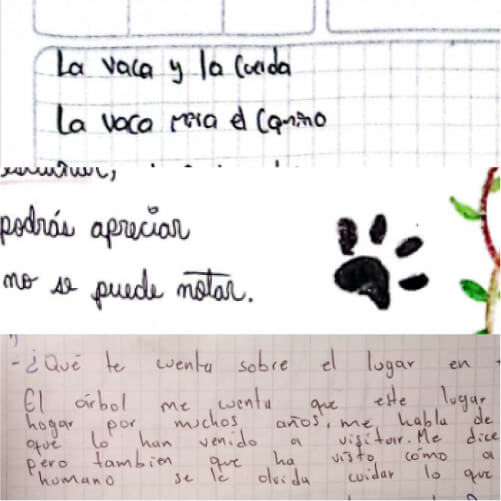 La vaca y la
La vaca mira el camino
podrás apreciar
no se puede notar.
- ¿Qué te cuenta sobre el lugar en
El árbol me cuenta que este lugar
hogar por muchos años, me habla de
que lo han venido a visitar. Me dice
pero tambien que ha visto como a
humano se le olvida cuidar lo que